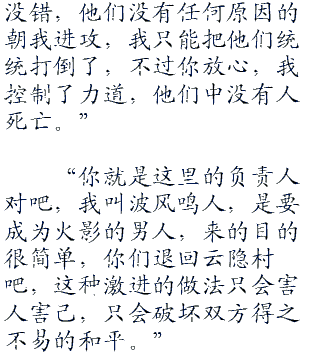 没错，他们没有任何原因的
朝我进攻，我只能把他们统
统打倒了，不过你放心，我
控制了力道，他们中没有人
死亡。”
“你就是这里的负责人
对吧，我叫波风鸣人，是要
成为火影的男人，来的目的
很简单，你们退回云隐村
吧，这种激进的做法只会害
人害己，只会破坏双方得之
不易的和平。”